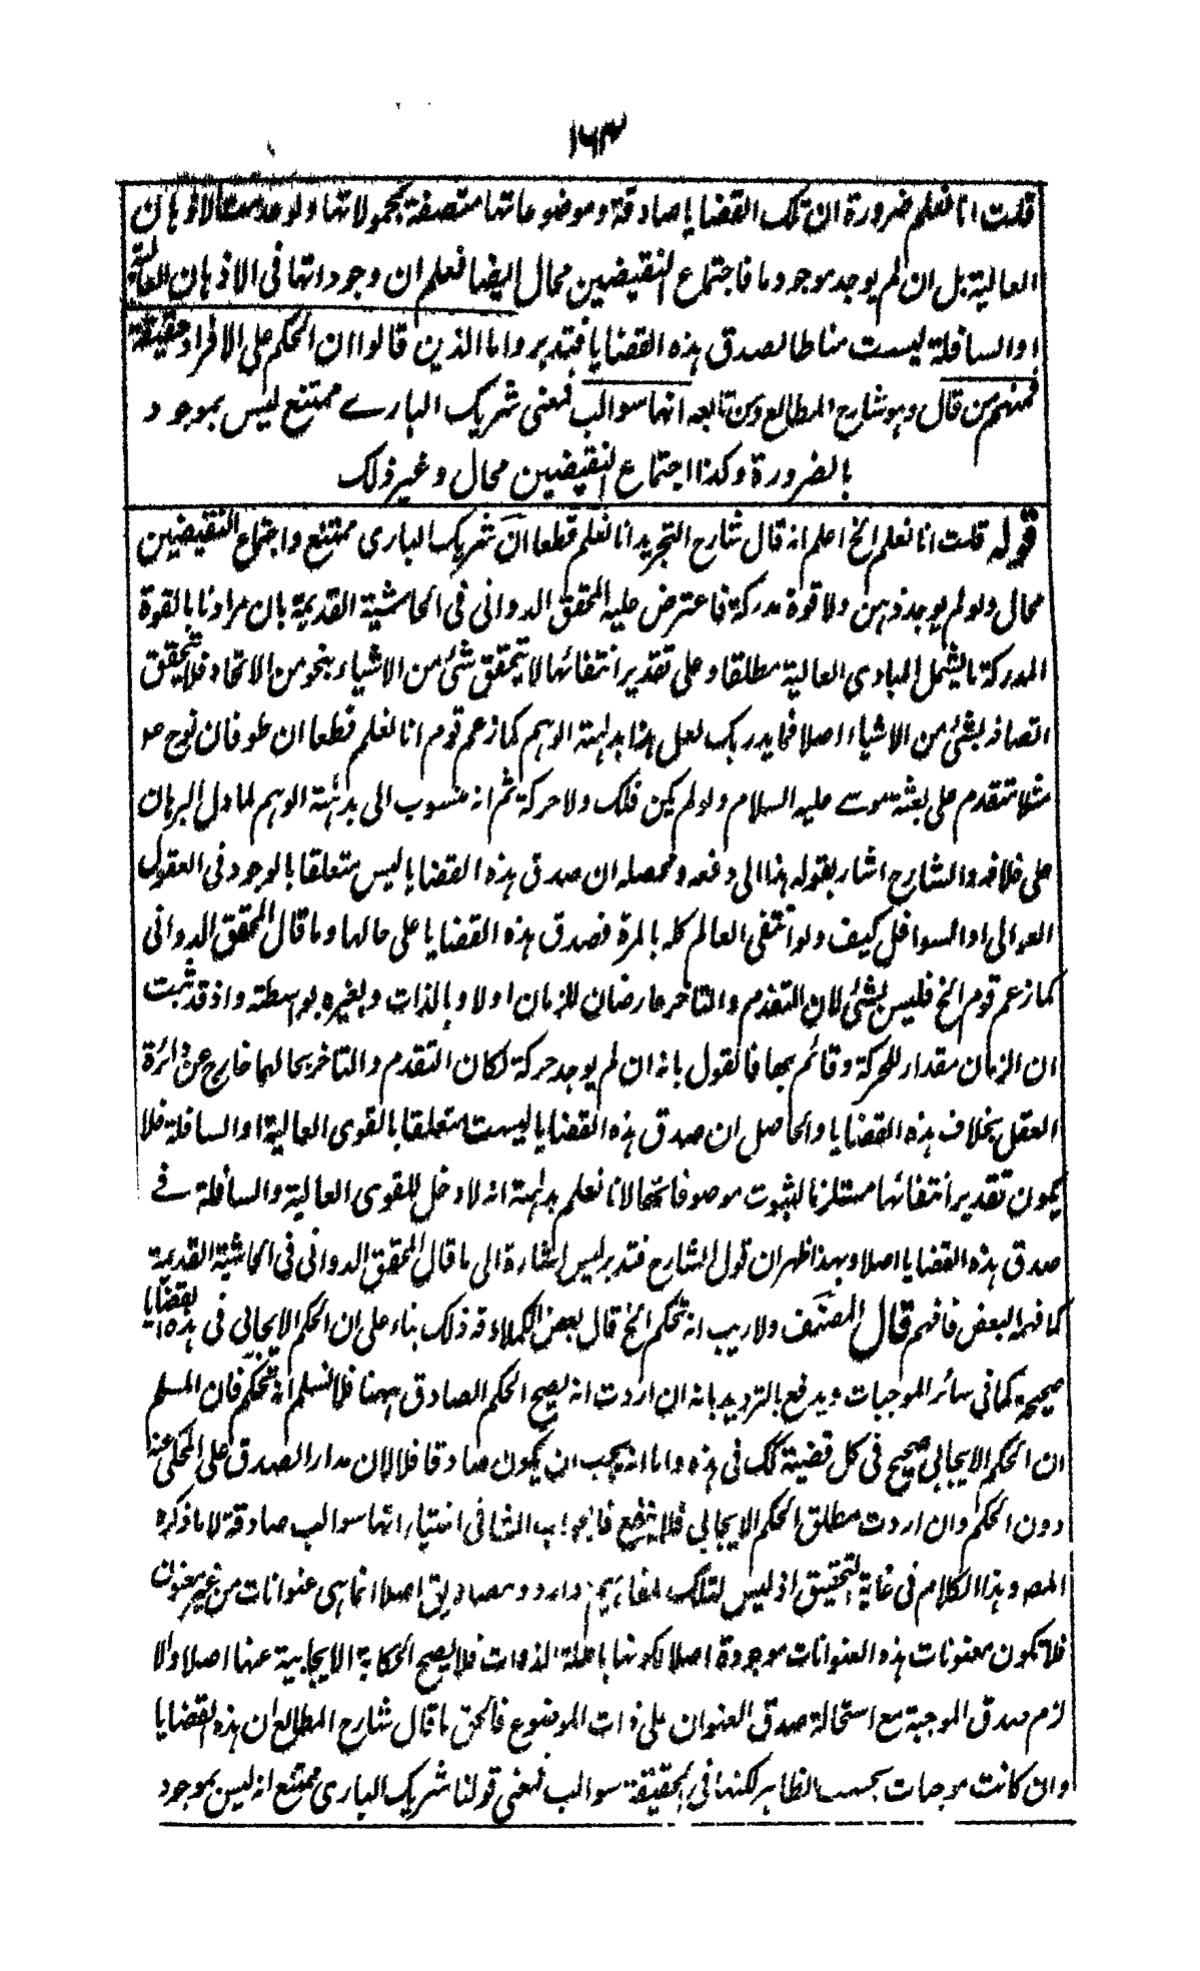 ١٦٣
قلت انا نعلم ضرورة ان تلك القضايا صادقة وموضوعاتها متصفة بمحمولاتها ولو عدمت الاذهان
العالية بل ان لم يوجد موجود ما فاجتماع النقيضين محال ايضا فعلم ان وجوداتها فى الاذهان العالية
او السافلة ليست مناطا لصدق هذه القضايا فتدبر واما الذين قالوا ان الحكم على الافراد حقيقة
فمنهم من قال وهو شارح المطالع ومن تابعه انها سوالب فمعنى شريك البارے ممتنع ليس بموجود
بالضرورة وكذا اجتماع النقيضين محال وغير ذلك
قوله قلت انا نعلم الخ اعلم انه قال شارح التجريد انا نعلم قطعا ان شريك البارى ممتنع واجتماع النقيضين
محال ولو لم يوجد ذهن ولا قوة مدركة فاعترض عليه المحقق الدوانى فى الحاشية القديمة بان مرادنا بالقوة
المدركة ما يشمل المبادى العالية مطلقا وعلى تقدير انتفائها لا يتحقق شئ من الاشياء بنحو من الاتحاد فلا يتحقق
اتصافه بشئ من الاشياء اصلا فما يدريك لعل هذا بداهة الوهم كما زعم قوم انا نعلم قطعا ان طوفان نوح عم
مثلا متقدم على بعثة موسے عليه السلام ولو لم يكن فلك ولا حركة ثم انه منسوب الى بداهة الوهم لما دل البرهان
على خلافه والشارح اشار بقوله هذا الى دفعه ومحصله ان صدق هذه القضايا ليس متعلقا بالوجود فى العقول
العوالى او السوافل كيف ولو انتفى العالم كله بالمرة فصدق هذه القضايا على حالها وما قال المحقق الدوانى
كما زعم قوم الخ فليس بشئ لان التقدم والتاخر عارضان للزمان اولا وبالذات ولغيره بواسطته واذ قد ثبت
ان الزمان مقدار للحركة وقائم بها فالقول بانه ان لم يوجد حركة لكان التقدم والتاخر بحالهما خارج عن دائرة
العقل بخلاف هذه القضايا والحاصل ان صدق هذه القضايا ليست متعلقا بالقوى العالية او السافلة فلا
يكون تقدير انتفائها مستلزما لثبوت موصوفاتها لانا نعلم بداهة انه لا دخل للقوى العالية والسافلة فے
صدق هذه القضايا اصلا وبهذا ظهر ان قول الشارح فتدبر ليس اشارة الى ما قال المحقق الدوانى فى الحاشية القديمة
كما فهمه البعض فافهم قال المصنف ولا ريب انه تحكم الخ قال بعض الكملاء قه ذلك بناء على ان الحكم الايجابى فى هذه القضايا
صحيح كما فى سائر الموجبات ويدفع بالترديد بانه ان اردت انه يصح الحكم الصادق ههنا فلا نسلم انه تحكم فان المسلم
ان الحكم الايجابى صحيح فى كل قضية كك فى هذه واما انه يجب ان يكون صادقا فلا لان مدار الصدق على المحكى عنه
دون الحكم وان اردت مطلق الحكم الايجابى فلا ينفع فالجواب الشافى اختيار انها سوالب صادقة لا ما ذكره
المصـ وهذا الكلام فى غاية التحقيق اذ ليس لتلك المفاهيم موارد ومصاديق اصلا انما هى عنوانات من غير معنون
فلا تكون معنونات هذه العنوانات موجودة اصلا لكونها باطلة الذوات فلا يصح الحكاية الايجابية عنها اصلا والا
لزم صدق الموجبة مع استحالة صدق العنوان على ذات الموضوع فالحق ما قال شارح المطالع ان هذه القضايا
وان كانت موجبات بحسب الظاهر لكنها فى الحقيقة سوالب فمعنى قولنا شريك البارى ممتنع انه ليس بموجود